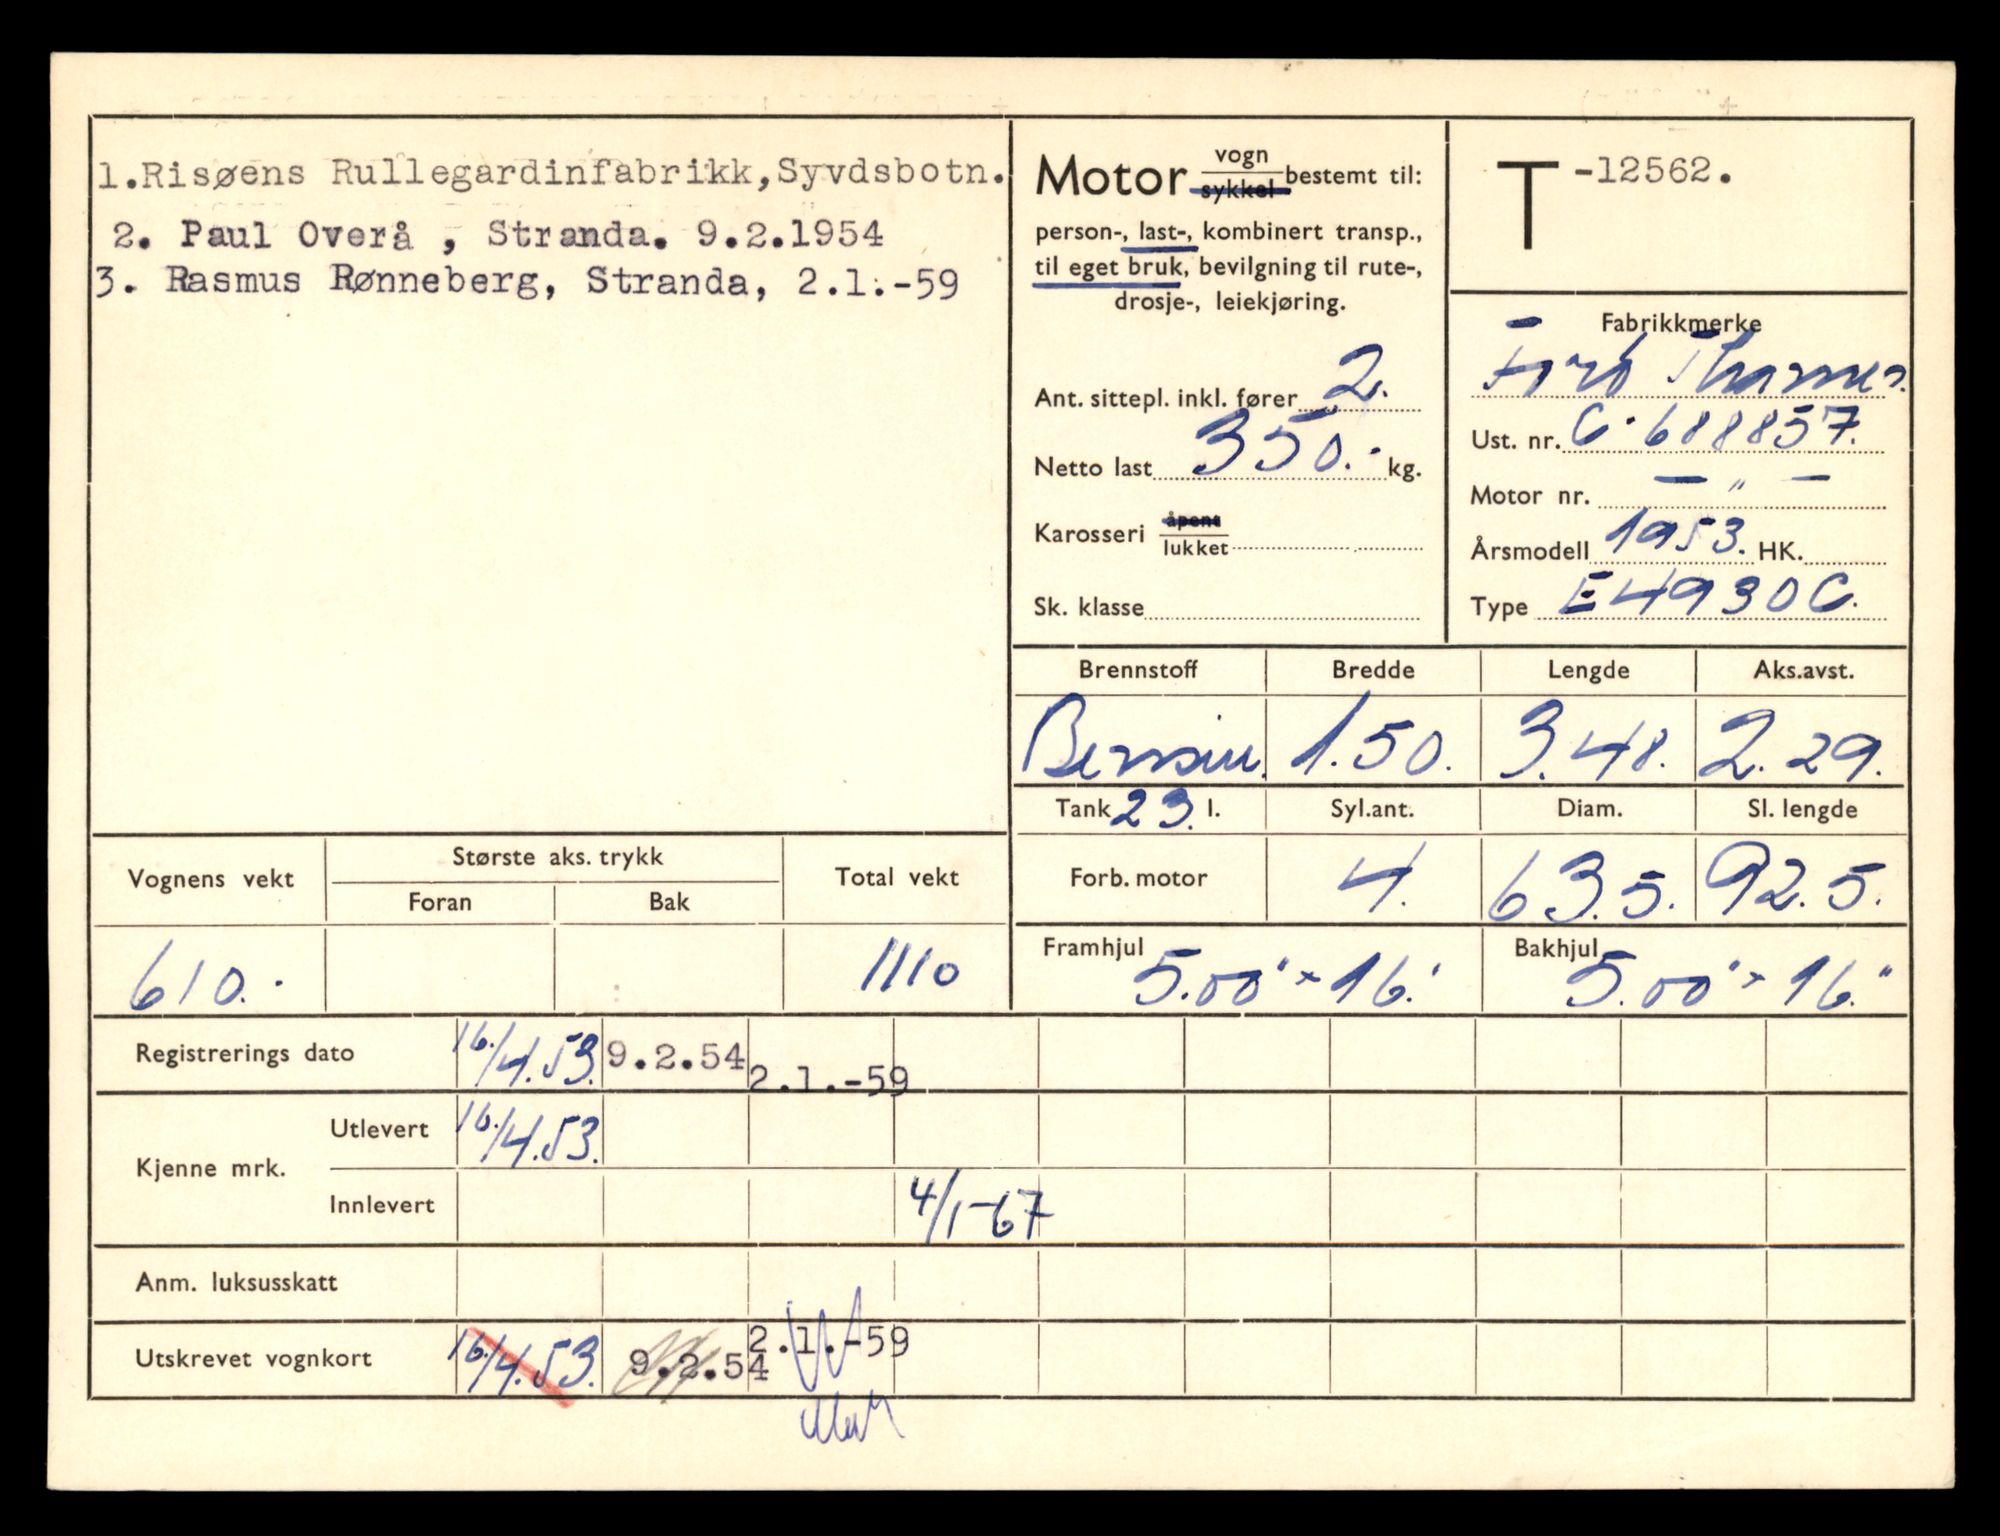 1.Risøens Rullegardinfabrikk,Syvdsbotn.
2. Paul Overå , Stranda. 9.2.1954
3. Rasmus Rønneberg, Stranda, 2.1.-59
Motor vogn sykkel bestemt til:
person-, last-, kombinert transp.,
til eget bruk, bevilgning til rute-,
drosje-, leiekjøring.
Ant. sittepl. inkl. fører 2.
Netto last 350.- kg.
Karosseri åpent lukket
Sk. klasse
T -12562.
Fabrikkmerke
Ford Thames.
Ust. nr. C.688857.
Motor nr. — " —
Årsmodell 1953. HK.
Type E4930C.
Brennstoff Bredde Lengde Aks.avst.
Bensin. 1.50. 3.48. 2.29.
Tank 23. l. Syl.ant. Diam. Sl. lengde
Forb. motor 4. 63.5. 92.5.
Framhjul 5.00" × 16." Bakhjul 5.00" × 16."
Vognens vekt Største aks. trykk Total vekt
Foran Bak
610.- 1110
Registrerings dato 16./4.53. 9.2.54 2.1.-59
Kjenne mrk. Utlevert 16./4.53.
Innlevert 4/1-67
Anm. luksusskatt
Utskrevet vognkort 16./4.53. 9.2.54 2.1.-59